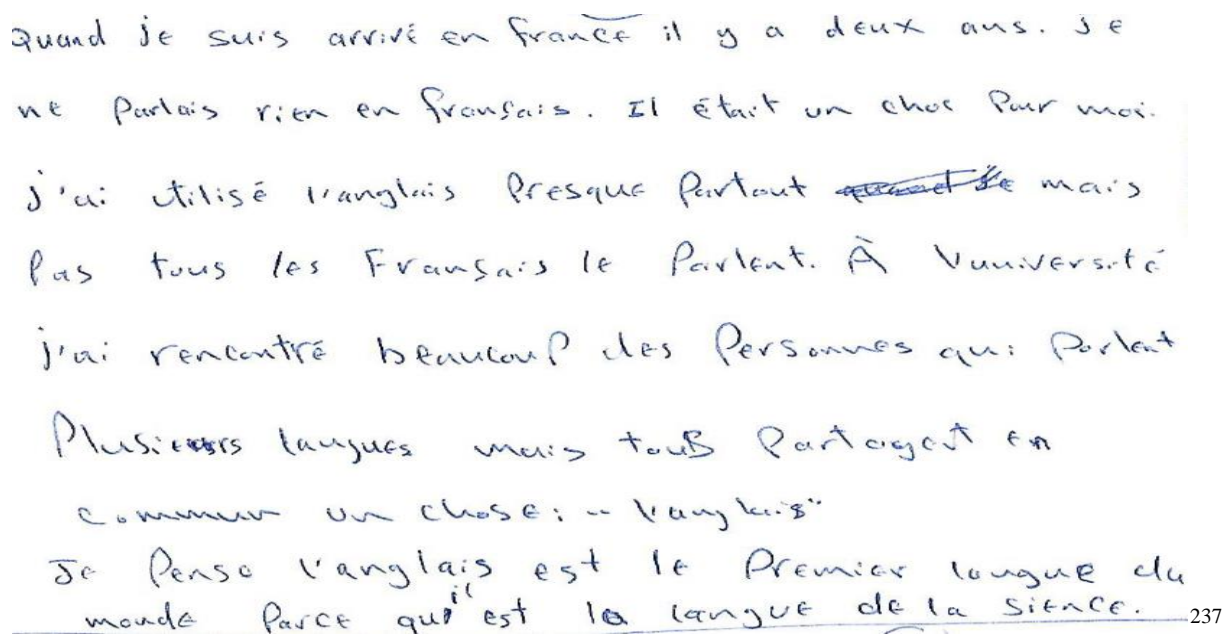 Quand je suis arrivé en france il y a deux ans. Je
ne parlais rien en français. Il était un choc pour moi.
j'ai utilisé l'anglais presque partout mais
pas tous les Français le parlent. À l'université
j'ai rencontré beaucoup des personnes qui parlent
Plusieurs langues mais tous partagent en
commun un chose : "l'anglais"
Je pense l'anglais est le premier langue du
monde parce qu'il est la langue de la sience.
237